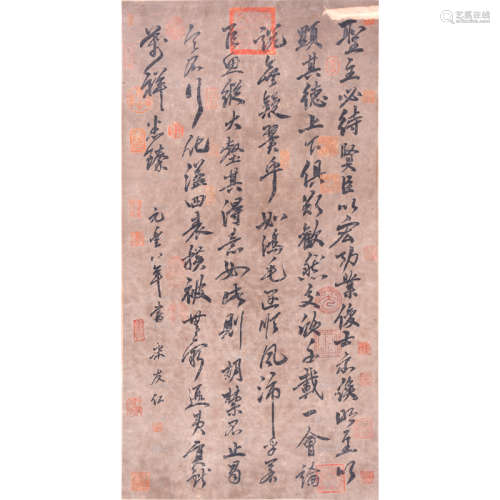 聖主必待賢臣以宏功業俊士亦俟明主以
顯其德上下俱欲歡然交欣千載一會論
說無疑翼乎如鴻毛遇順風沛乎若
巨魚縱大壑其得意如此則胡禁不止曷
令不行化溢四表橫被無窮遐夷貢獻
萬祥畢臻
元豐八年 友仁